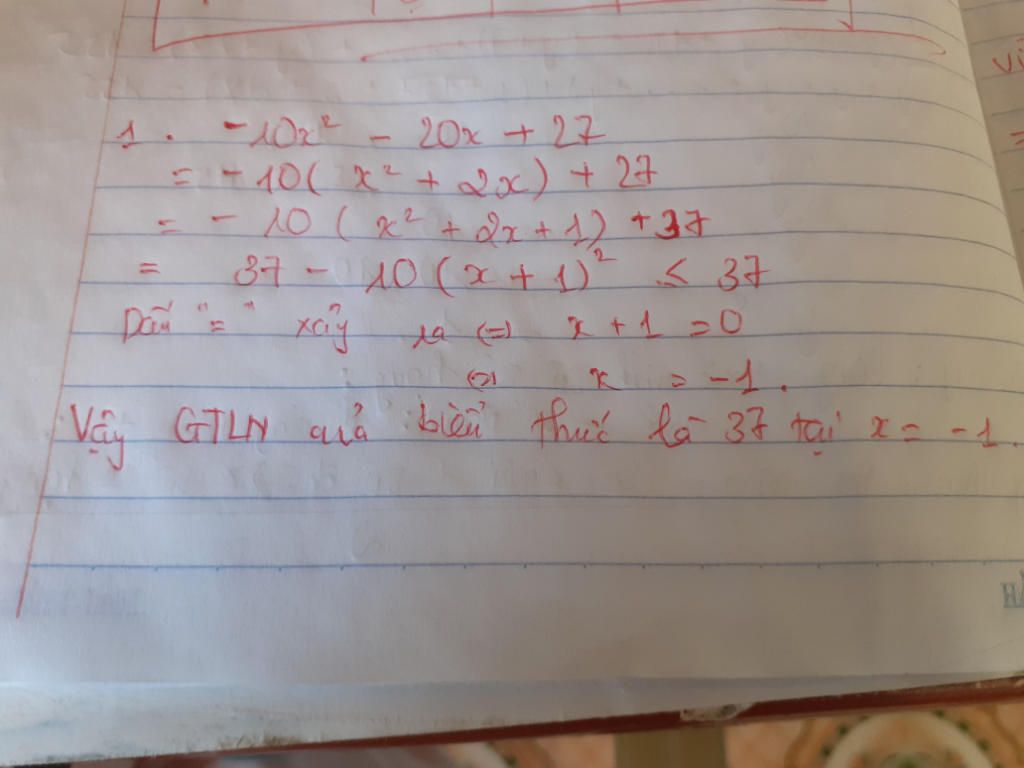 1. -10x² - 20x + 27
= -10( x² + 2x) + 27
= - 10 ( x² + 2x + 1) + 37
= 37 - 10 ( x + 1)² ≤ 37
Dấu "=" xảy ra <=> x + 1 = 0
<=> x = -1.
Vậy GTLN quả biểu thức là 37 tại x = -1.